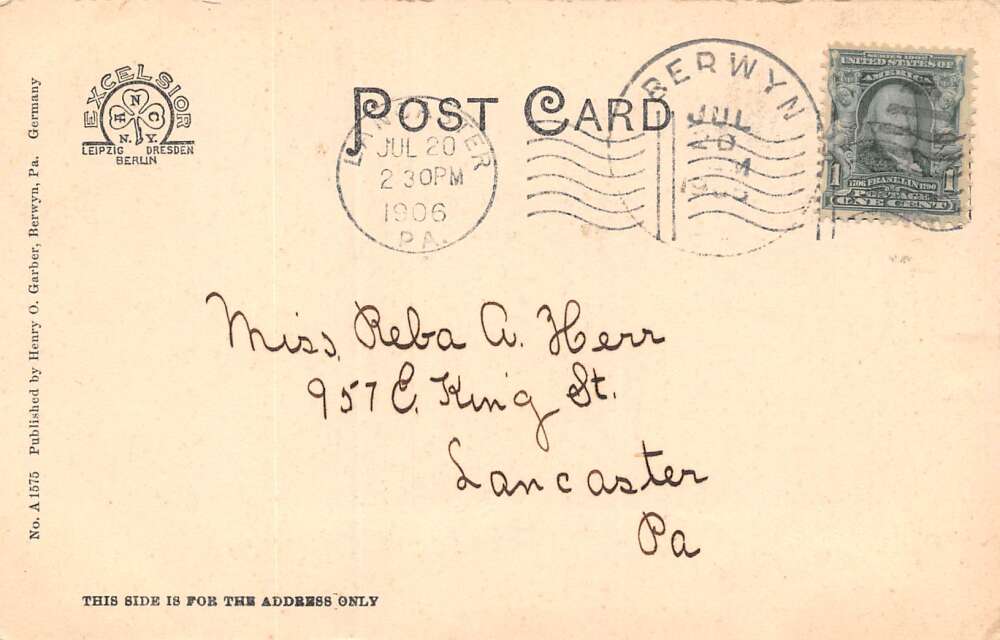 EXCELSIOR
H N C
N. Y.
LEIPZIG DRESDEN
BERLIN
POST CARD
LANCASTER
JUL 20
2 30PM
1906
PA.
BERWYN
JUL
SERIES 1902
UNITED STATES OF
AMERICA
1 1
1706 FRANKLIN 1790
POSTAGE
ONE CENT
Miss, Reba A. Herr
957 E. King St.
Lancaster
Pa
No. A 1575 Published by Henry O. Garber, Berwyn, Pa. Germany
THIS SIDE IS FOR THE ADDRESS ONLY